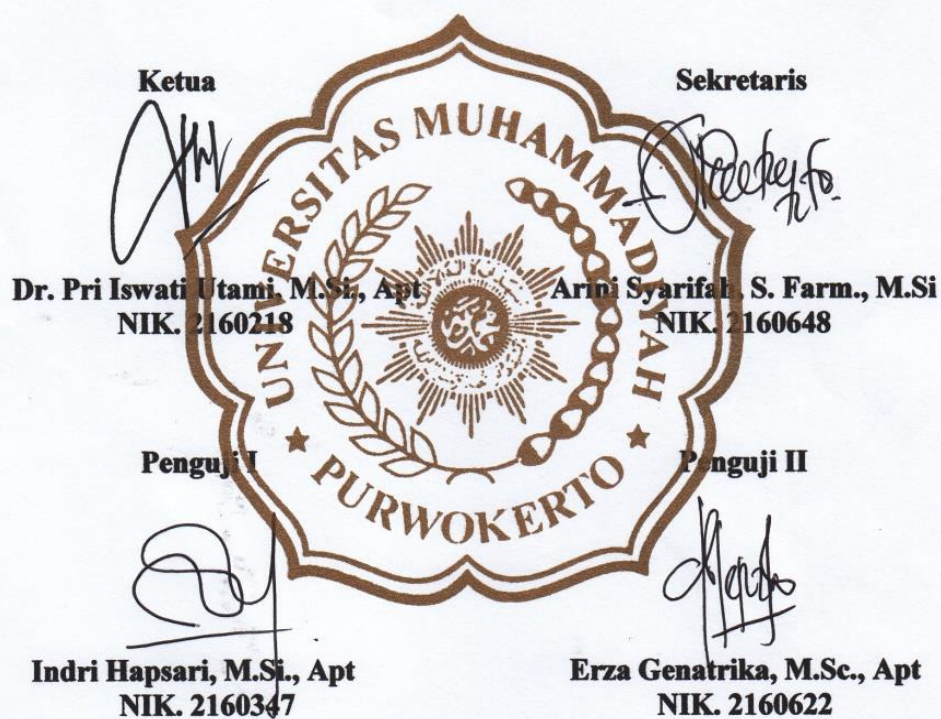 Ketua
Sekretaris
UNIVERSITAS MUHAMMADIYAH
PURWOKERTO
Dr. Pri Iswati Utami, M.Si., Apt
NIK. 2160218
Arini Syarifah, S. Farm., M.Si
NIK. 2160648
Penguji I
Penguji II
Indri Hapsari, M.Si., Apt
NIK. 2160347
Erza Genatrika, M.Sc., Apt
NIK. 2160622